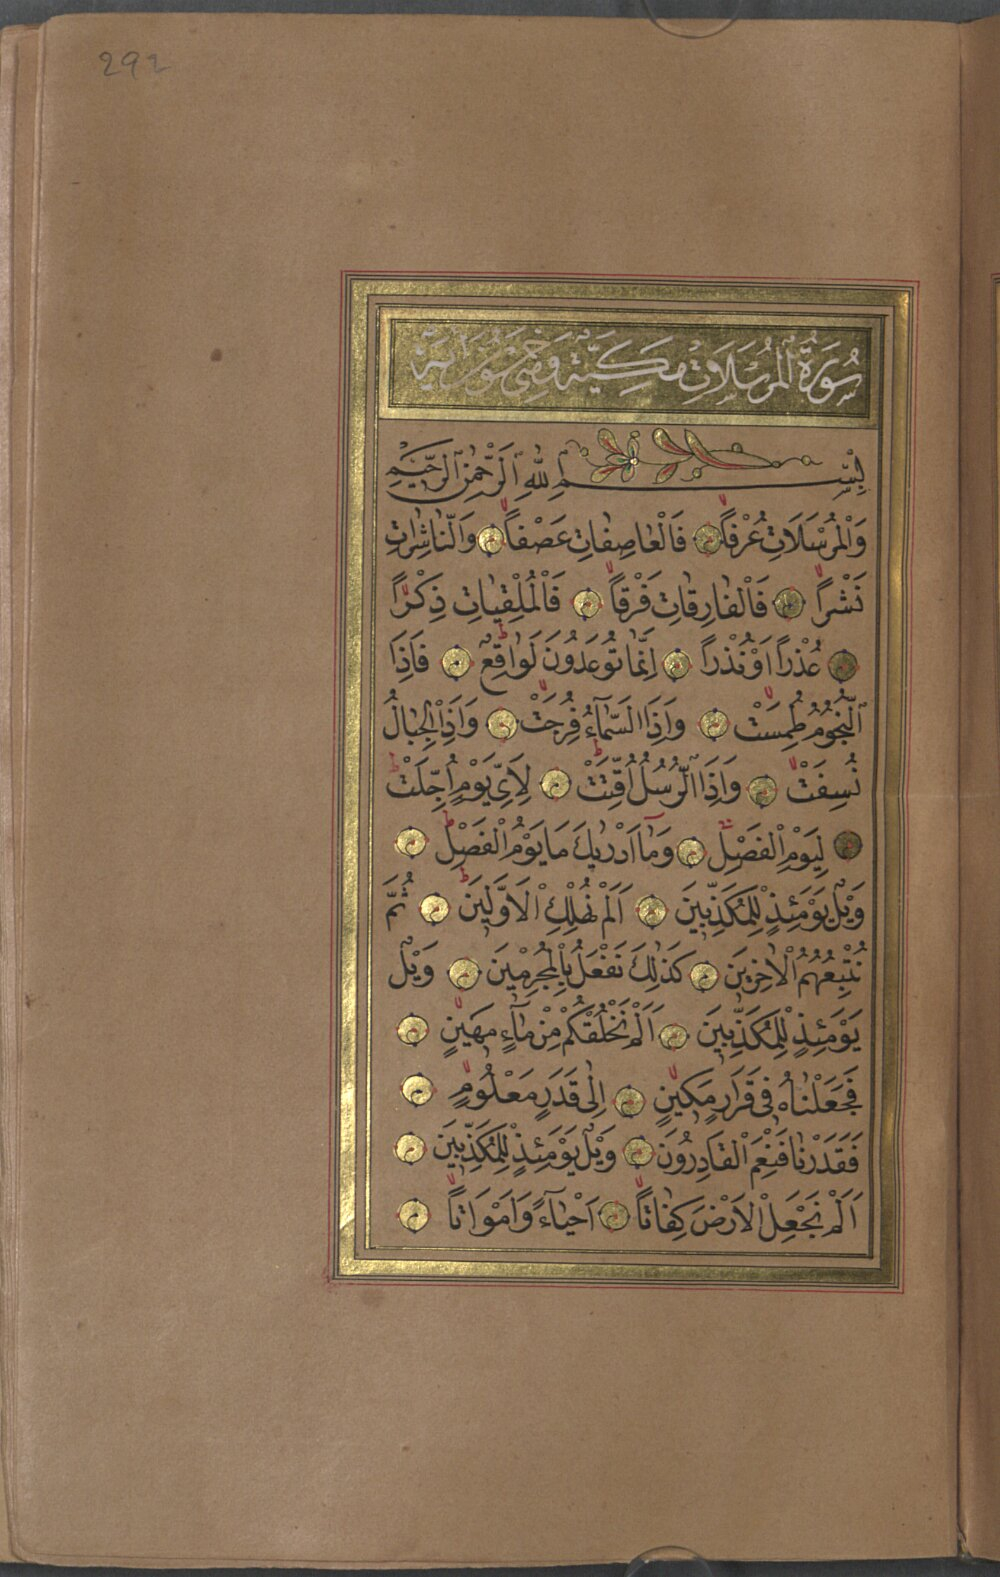 292
سُورَةُ الْمُرْسَلَاتِ مَكِّيَّةٌ وَهِيَ خَمْسُونَ اٰيَةً
بِسْمِ اللّٰهِ الرَّحْمٰنِ الرَّحِيمِ
وَالْمُرْسَلَاتِ عُرْفًا فَالْعَاصِفَاتِ عَصْفًا وَالنَّاشِرَاتِ
نَشْرًا فَالْفَارِقَاتِ فَرْقًا فَالْمُلْقِيَاتِ ذِكْرًا
عُذْرًا اَوْ نُذْرًا اِنَّمَا تُوعَدُونَ لَوَاقِعٌ فَاِذَا
النُّجُومُ طُمِسَتْ وَاِذَا السَّمَاءُ فُرِجَتْ وَاِذَا الْجِبَالُ
نُسِفَتْ وَاِذَا الرُّسُلُ اُقِّتَتْ لِاَيِّ يَوْمٍ اُجِّلَتْ
لِيَوْمِ الْفَصْلِ وَمَا اَدْرٰيكَ مَا يَوْمُ الْفَصْلِ
وَيْلٌ يَوْمَئِذٍ لِلْمُكَذِّبِينَ اَلَمْ نُهْلِكِ الْاَوَّلِينَ ثُمَّ
نُتْبِعُهُمُ الْاٰخِرِينَ كَذٰلِكَ نَفْعَلُ بِالْمُجْرِمِينَ وَيْلٌ
يَوْمَئِذٍ لِلْمُكَذِّبِينَ اَلَمْ نَخْلُقْكُمْ مِنْ مَاءٍ مَهِينٍ
فَجَعَلْنَاهُ فِى قَرَارٍ مَكِينٍ اِلٰى قَدَرٍ مَعْلُومٍ
فَقَدَرْنَا فَنِعْمَ الْقَادِرُونَ وَيْلٌ يَوْمَئِذٍ لِلْمُكَذِّبِينَ
اَلَمْ نَجْعَلِ الْاَرْضَ كِفَاتًا اَحْيَاءً وَاَمْوَاتًا